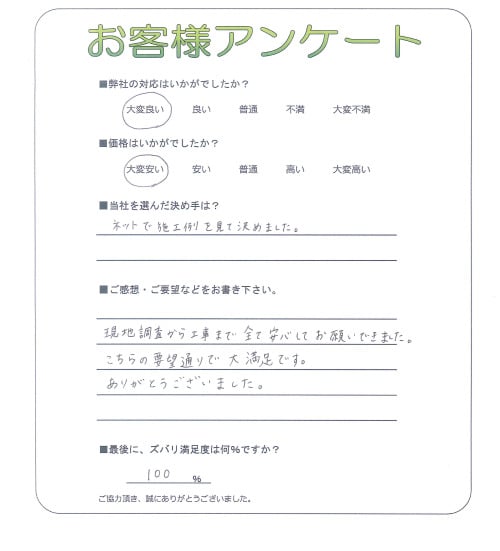 お客様アンケート
■弊社の対応はいかがでしたか？
大変良い 良い 普通 不満 大変不満
■価格はいかがでしたか？
大変安い 安い 普通 高い 大変高い
■当社を選んだ決め手は？
ネットで施工例を見て決めました。
■ご感想・ご要望などをお書き下さい。
現地調査から工事まで全て安心してお願いできました。
こちらの要望通りで大満足です。
ありがとうございました。
■最後に、ズバリ満足度は何％ですか？
100 ％
ご協力頂き、誠にありがとうございました。